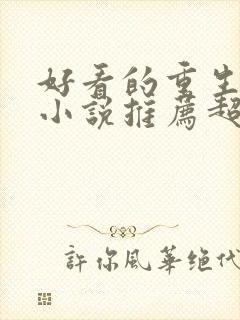 好看的重生
小説推薦超
許你風華绝代